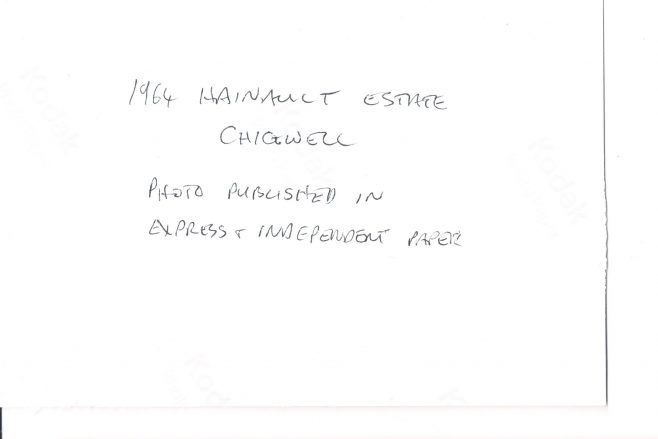 1964 HAINAULT ESTATE
CHIGWELL
PHOTO PUBLISHED IN
EXPRESS + INDEPENDENT PAPER
Kodak
Kodak
Kodak